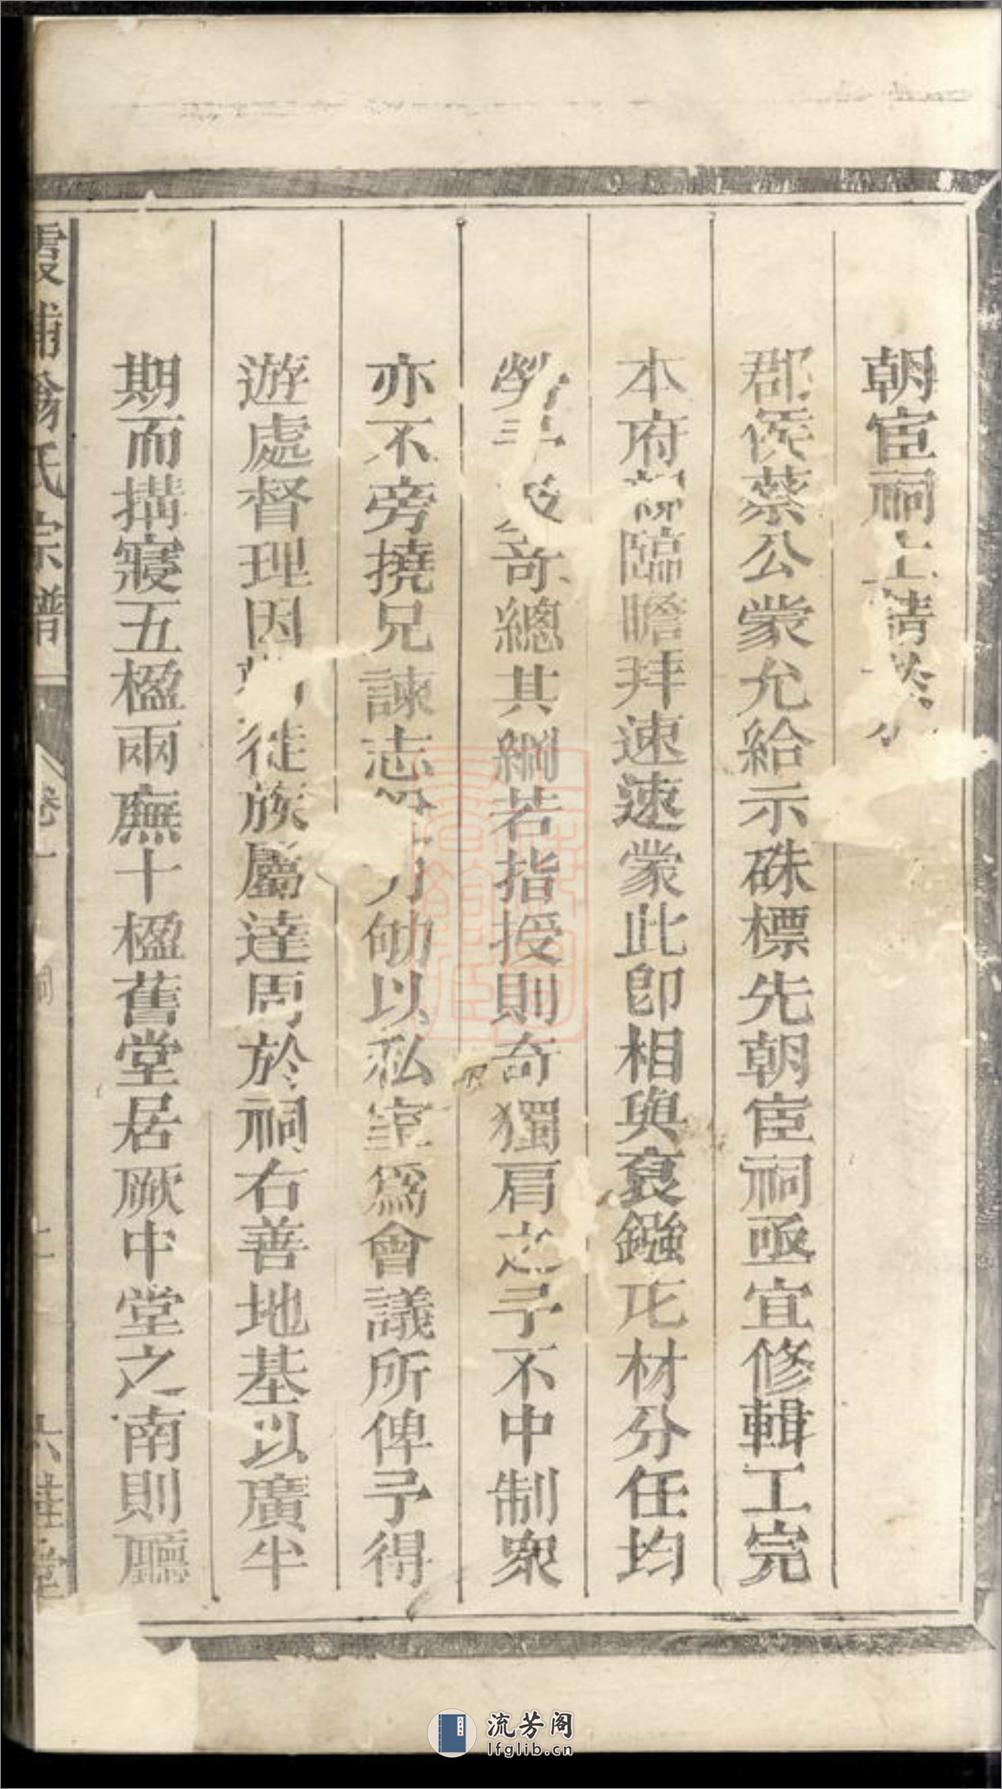 朝宦祠上請
郡侯蔡公蒙允給示硃標先朝宦祠亟宜修輯工完
本府親臨瞻拜速速蒙此卽相與裒鏹庀材分任均
勞奇總其綱若指授則奇獨肩之予不中制衆
亦不旁撓兄諫志力劬以私室爲會議所俾予得
遊處督理因徙族屬達周於祠右善地基以廣半
期而搆寢五楹兩廡十楹舊堂居厥中堂之南則廳
霞浦翁氏宗譜
卷一
祠
六桂堂
流芳阁
lfglib.cn